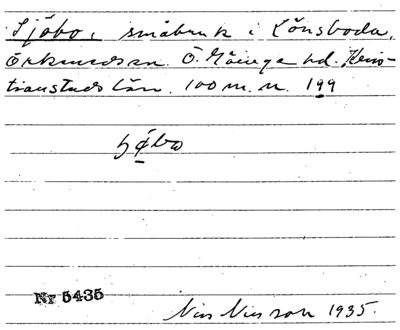 Sjöbo, småbruk i Lönsboda,
Örkeneds sn. Ö. Göinge hd. Kris-
tianstads län. 100 m. n. 199
Nr 5435
Nils Nilsson 1935.